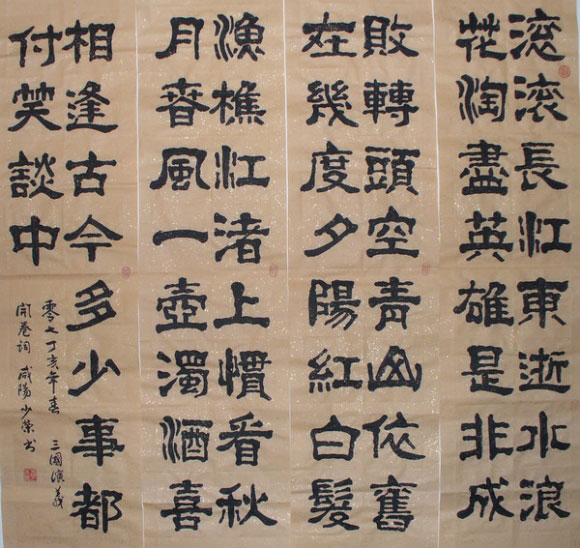 滚滚長江東逝水浪
花淘盡英雄是非成
敗轉頭空青山依舊
在幾度夕陽紅白髮
漁樵江渚上慣看秋
月春風一壺濁酒喜
相逢古今多少事都
付笑談中
零七丁亥年春 三國演義
開卷詞 咸陽少榮书